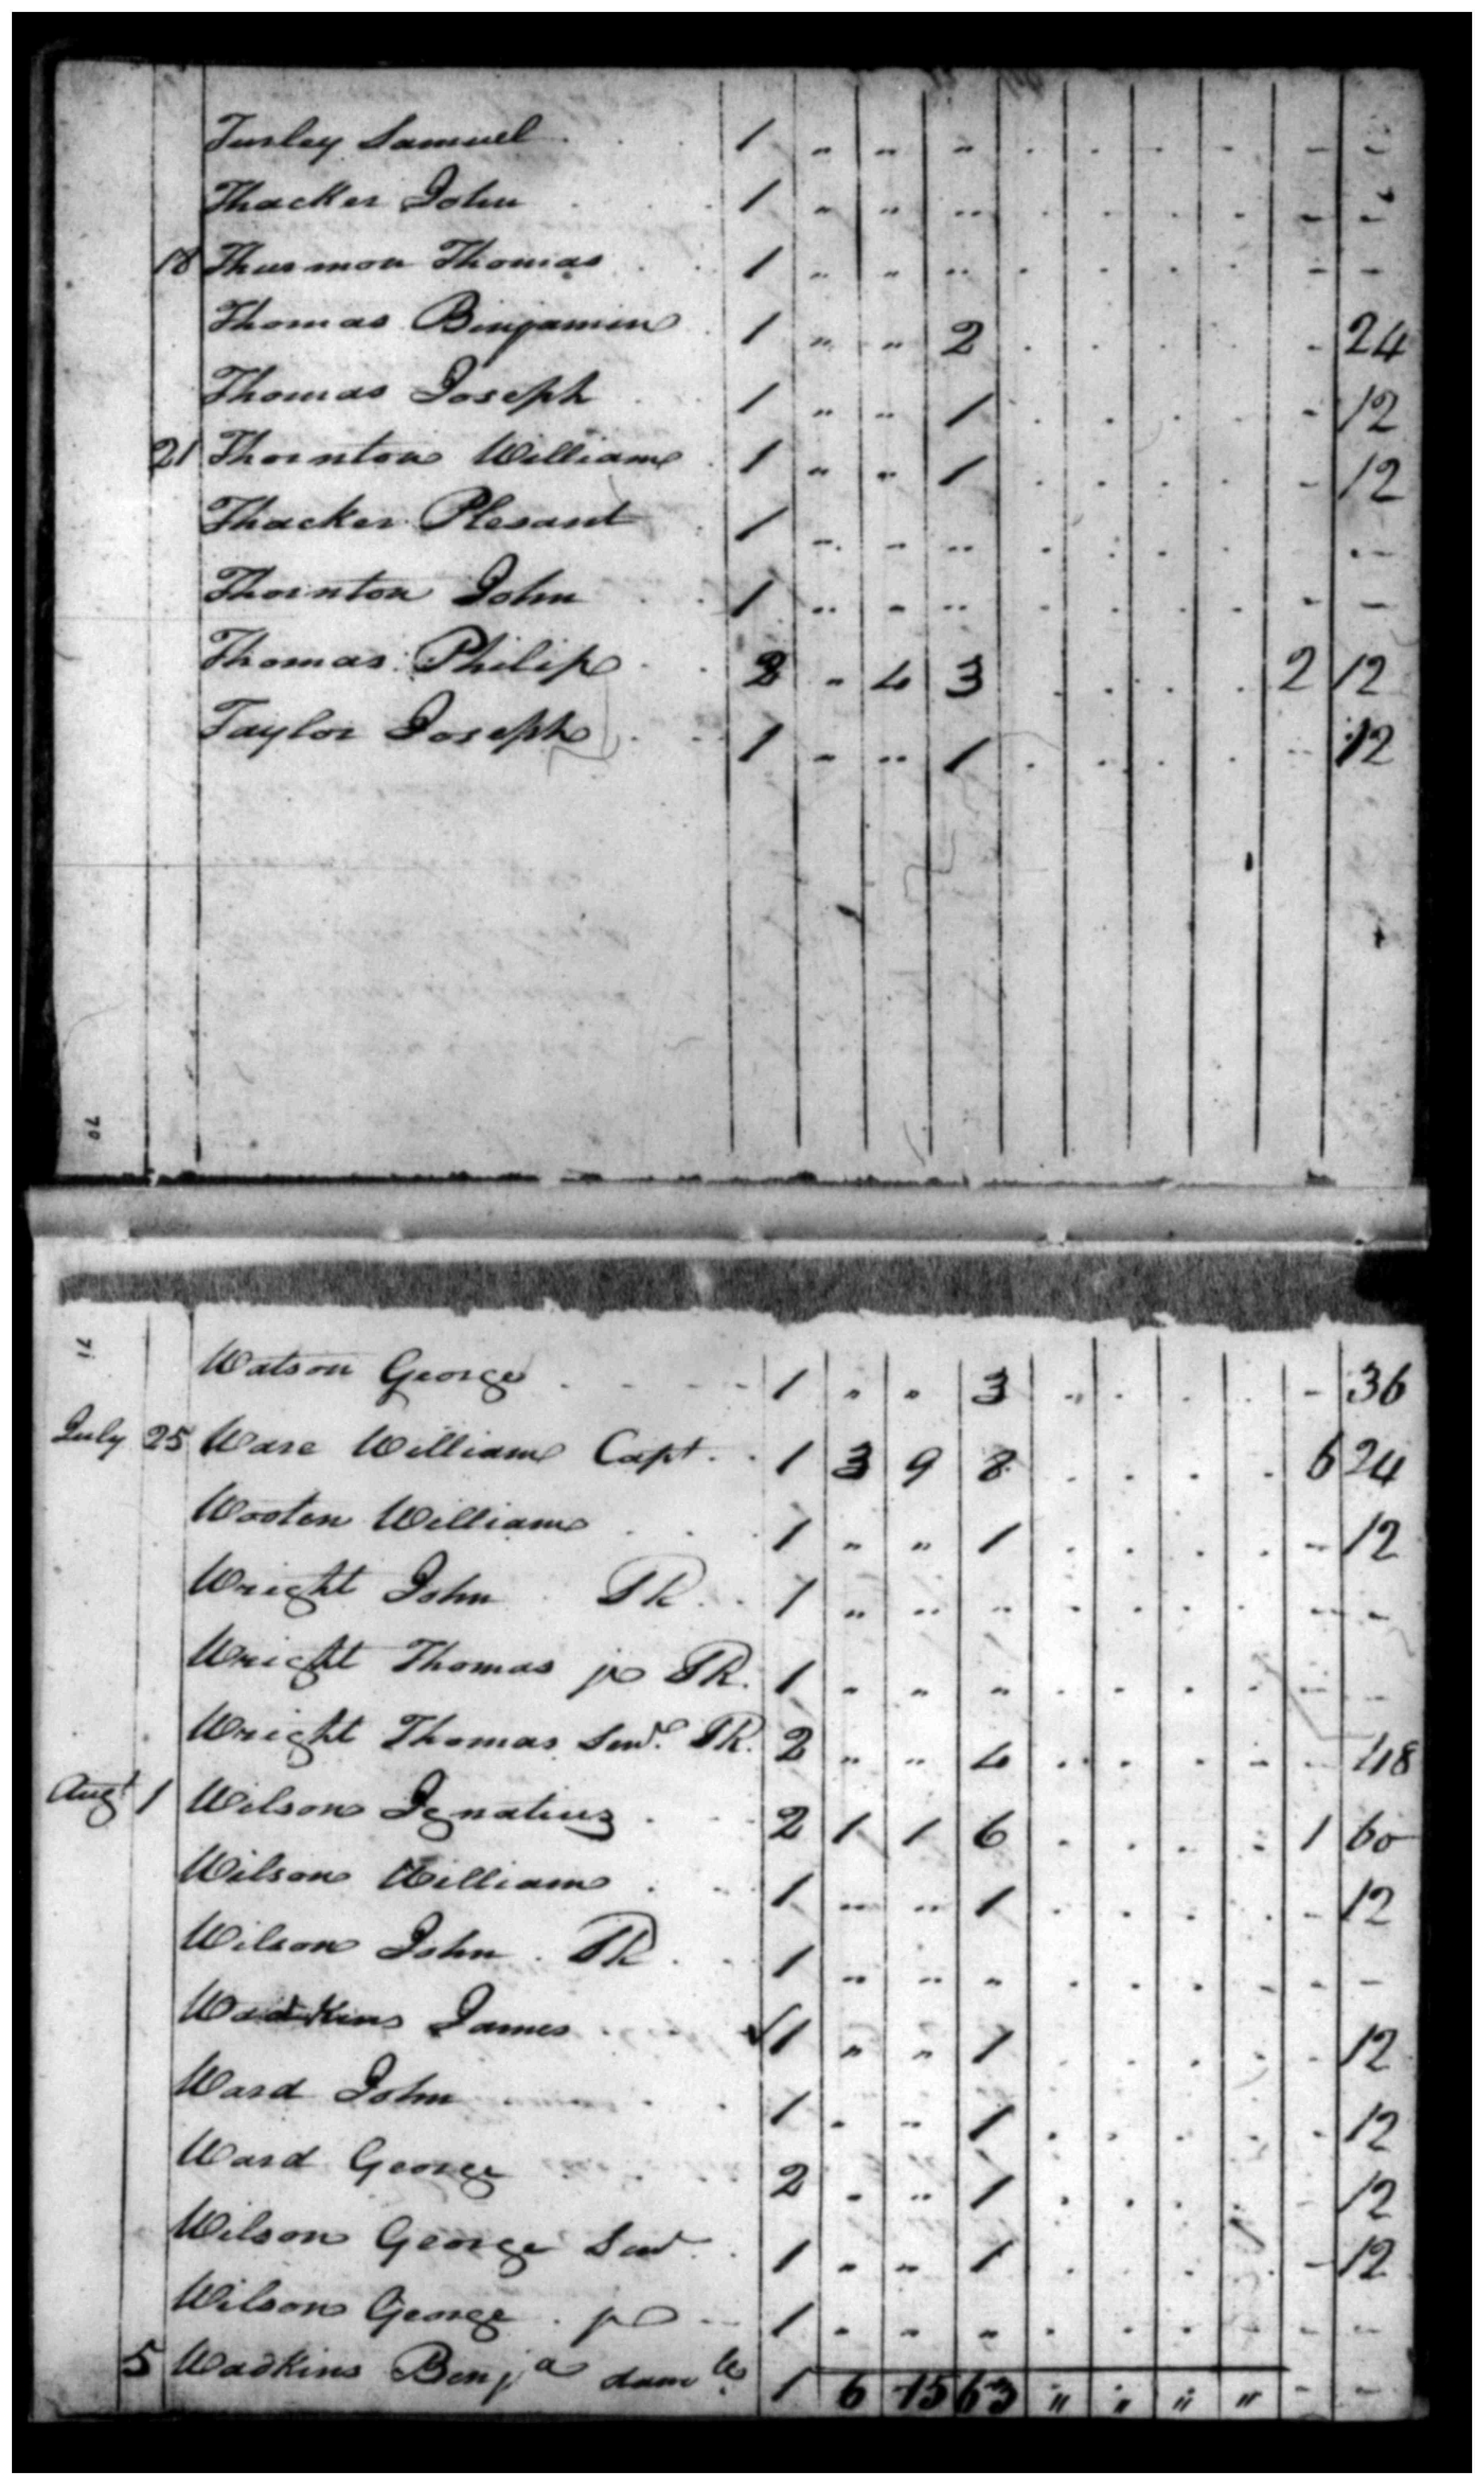 Turley Samuel 1 " " " . . . . - -
Thacker John 1 " " " . . . . - -
18 Thurmon Thomas 1 " " " . . . . - -
Thomas Binjamin 1 " " 2 . . . . - 24
Thomas Joseph 1 " " 1 . . . . - 12
21 Thornton William 1 " " 1 . . . . - 12
Thacker Plesant 1 " " " . . . . -
Thornton John 1 " " " . . . . - -
Thomas Philip 2 " 4 3 . . . . 2 12
Taylor Joseph 1 " " 1 . . . . " 12
70
71
Watson George 1 " " 3 . . . . - 36
July 25 Ware William Capt. 1 3 9 8 . . . . 6 24
Wooten William 1 " " 1 . . . . - 12
Wright John TR. 1 " " " . . . . - -
Wright Thomas jr TR. 1 " " " . . . . -
Wright Thomas Senr. TR. 2 " " 4 . . . . - 48
Augt 1 Wilson Ignatius 2 1 1 6 . . . . 1 60
Wilson William 1 " " 1 . . . . - 12
Wilson John TR 1 " " " . . . . - -
Wadkins James 1 " " 1 . . . . - 12
Ward John 1 " " 1 . . . . - 12
Ward George 2 " " 1 . . . . - 12
Wilson George Senr. 1 " " 1 . . . . - 12
Wilson George jr 1 " " " . . . . - -
5 Wadkins Benja 1 6 15 63 " " " " - -